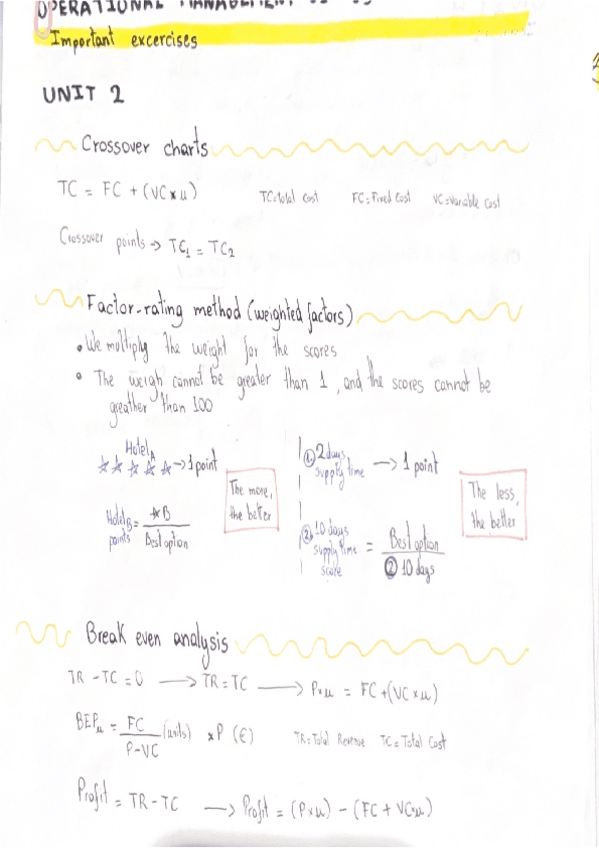 OPERATIONAL MANAGEMENT
Important excercises
UNIT 2
Crossover charts
TC = FC + (VC x u) TC=Total Cost FC=Fixed Cost VC=Variable Cost
Crossover points → TC1 = TC2
Factor-rating method (weighted factors)
• We multiply the weight for the scores
• The weigh cannot be greater than 1, and the scores cannot be
greather than 100
Hotel A
☆☆☆☆☆ → 1 point
The more,
the better
Hotel B points = ☆B / Best option
① 2 days
supply time → 1 point
The less,
the better
② 10 days
supply time
score = Best option / ② 10 days
Break even analysis
TR - TC = 0 → TR = TC → P x u = FC + (VC x u)
BEPu = FC / P-VC (units) x P (€) TR=Total Revenue TC=Total Cost
Profit = TR - TC → Profit = (P x u) - (FC + VC x u)